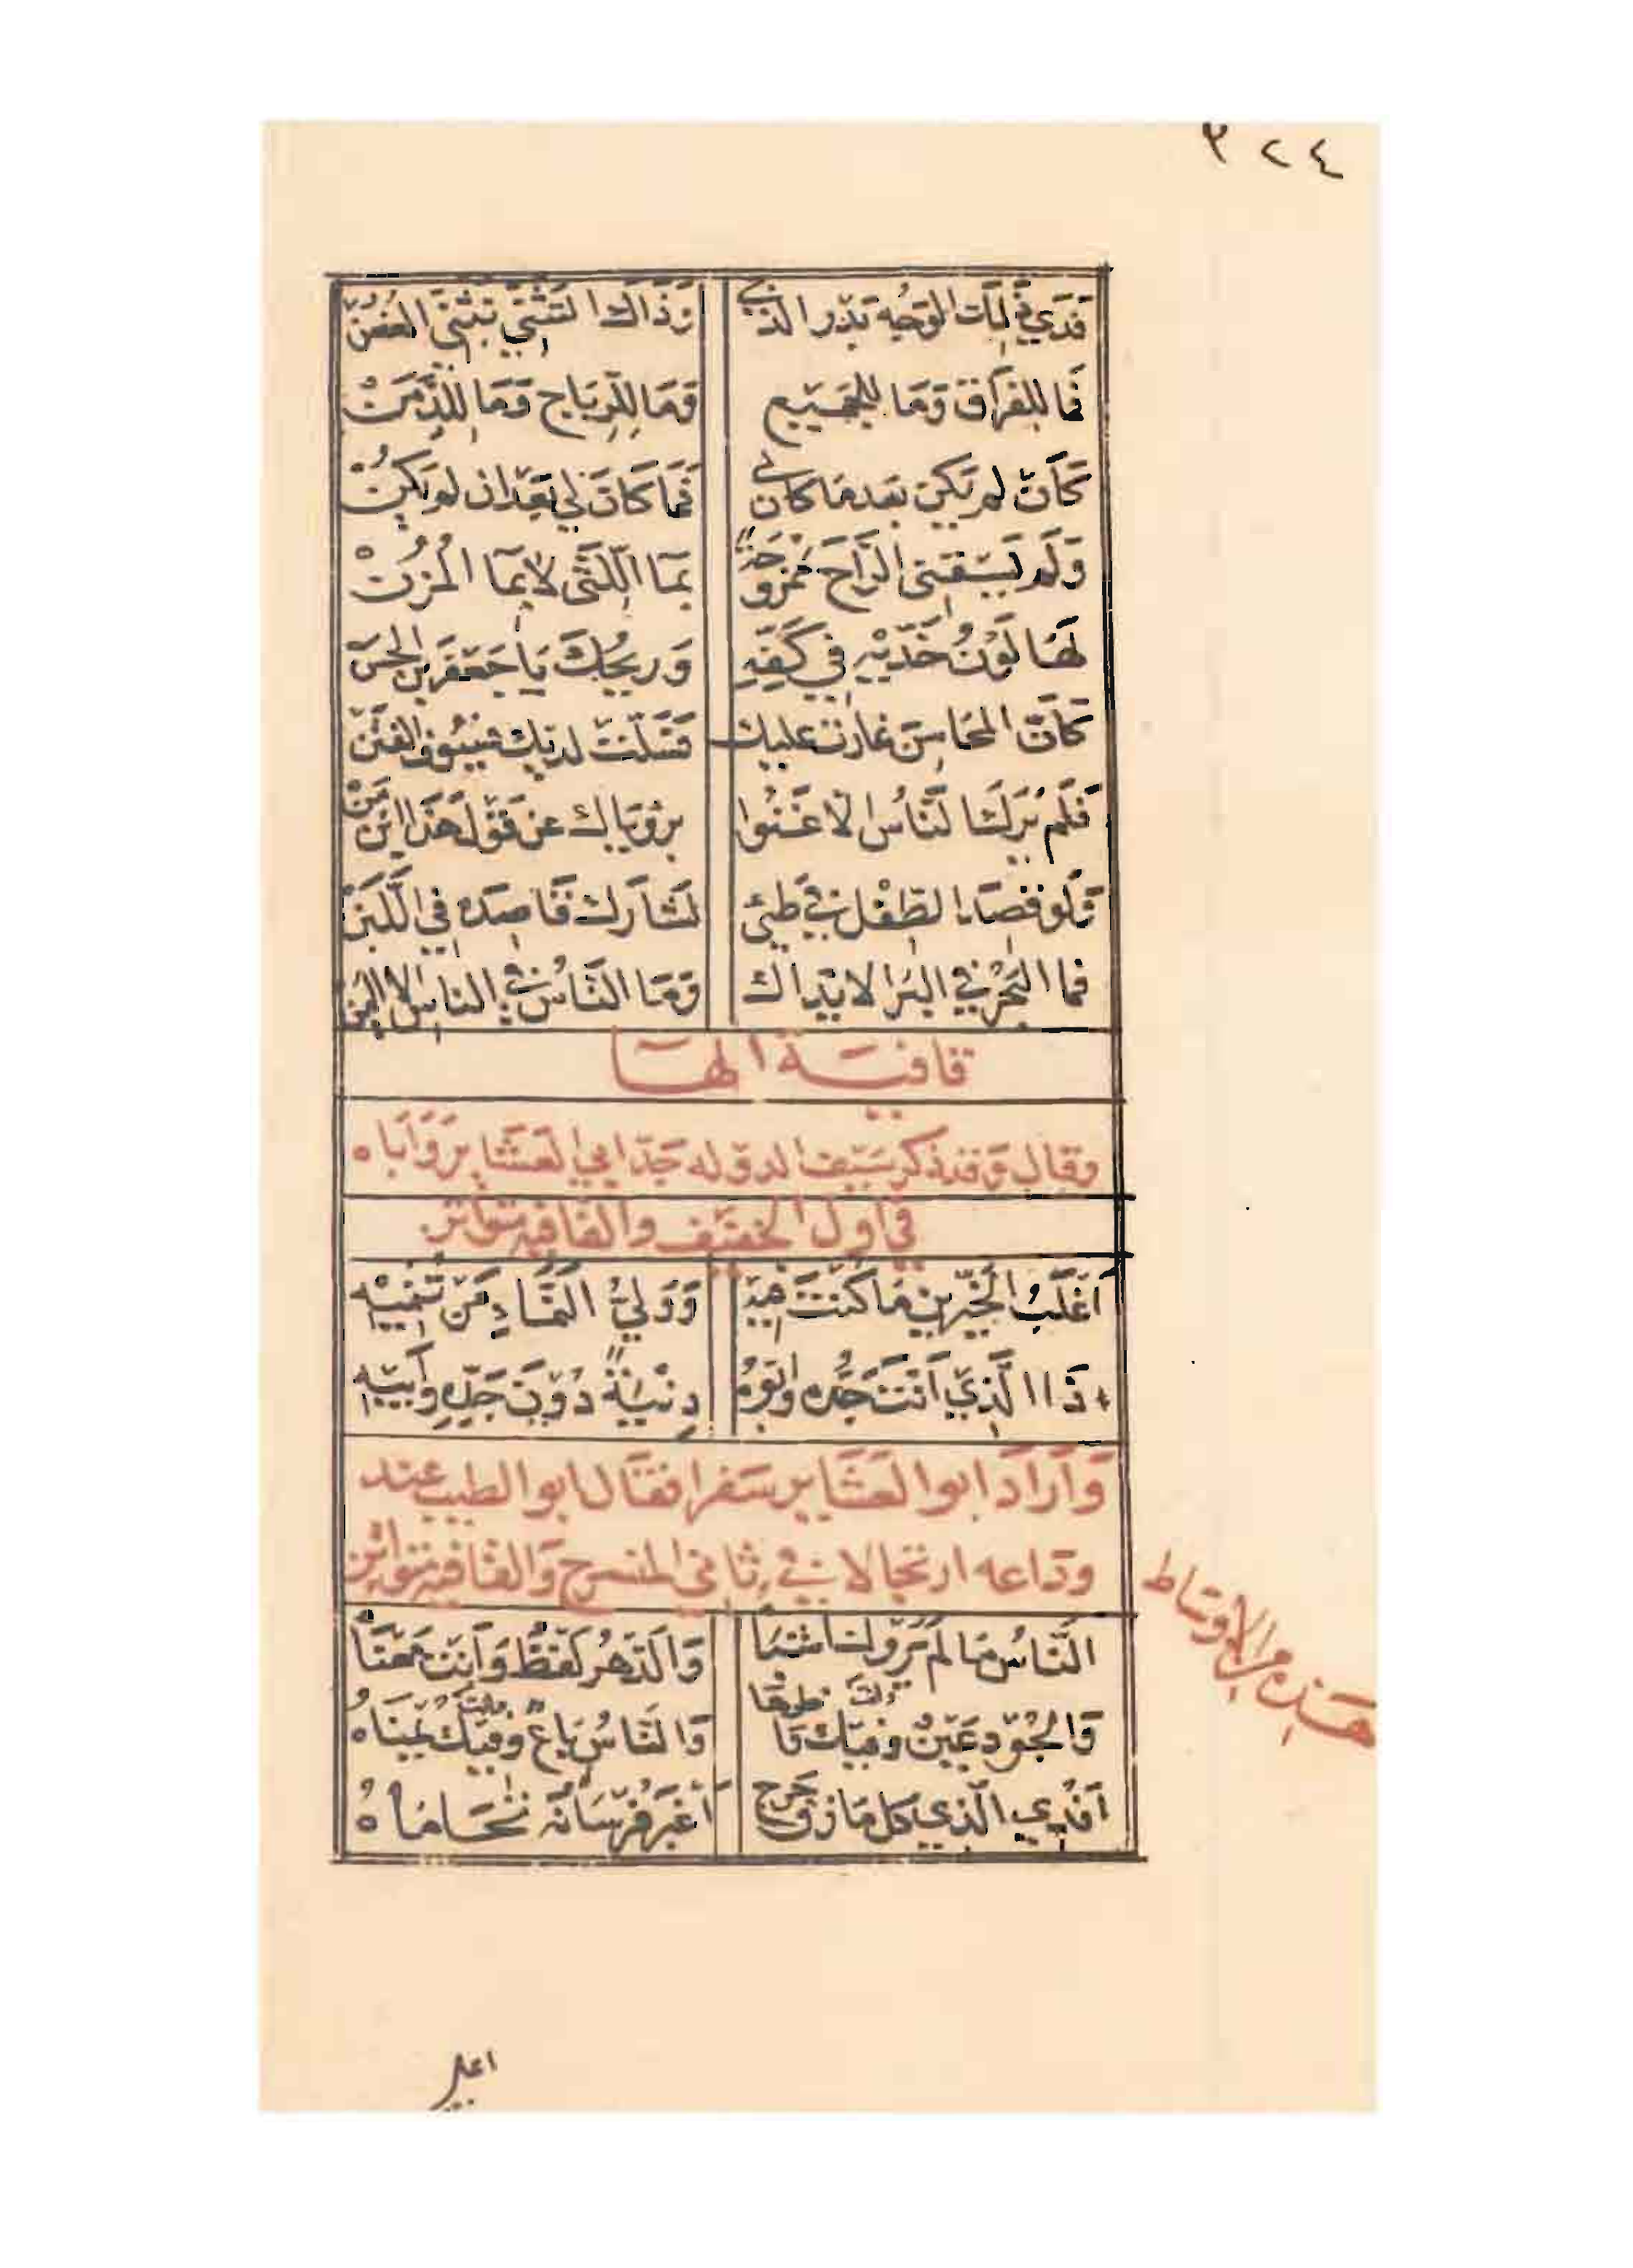 ٣٢٤
فدي ذلك الوجه بدر الدجى وذاك التثني تثني الغصن
فما للفراق وما للجميع وما للرياح وما للدمن
كأن لم يكن بعدما كان لي فما كان لي بعد ان لم يكن
ولم يسقني الراح ممزوجة بما اللثى لا بما المزن
لها لون خديه في كفه وريحك يا جعفر بن الحسن
كأن المحاسن غارت عليك فسلت لديك سيوف الفتن
فلم يرك الناس الا غنوا برؤياك عن قول هذا ابن من
ولو قصد الطفل في طيئ لشارك قاصده في اللبن
فما البحر في البر الا يداك وما الناس في الناس الا اليمن
قافية الها
وقال وقد ذكر سيف الدوله جد ابي العشاير واباه
في اول الخفيف والقافيه متواتر
اغلب الحيزين ما كنت فيه وولي النماء من تنميه
ذا الذي انت جده وابوه دنية دون جده وابيه
واراد ابوا العشاير سفرا فقال ابو الطيب عند
وداعه ارتجالا في ثاني المنسرح والقافيه متواتر
هذه من الاوساط
الناس ما لم يروك اشباه والدهر لفظ وانت معناه
والجود عين وفيك ناظرها والناس باع وفيك يمناه
افدي الذي كل مازق حرج اغبر فرسانه تحاماه
اعلى